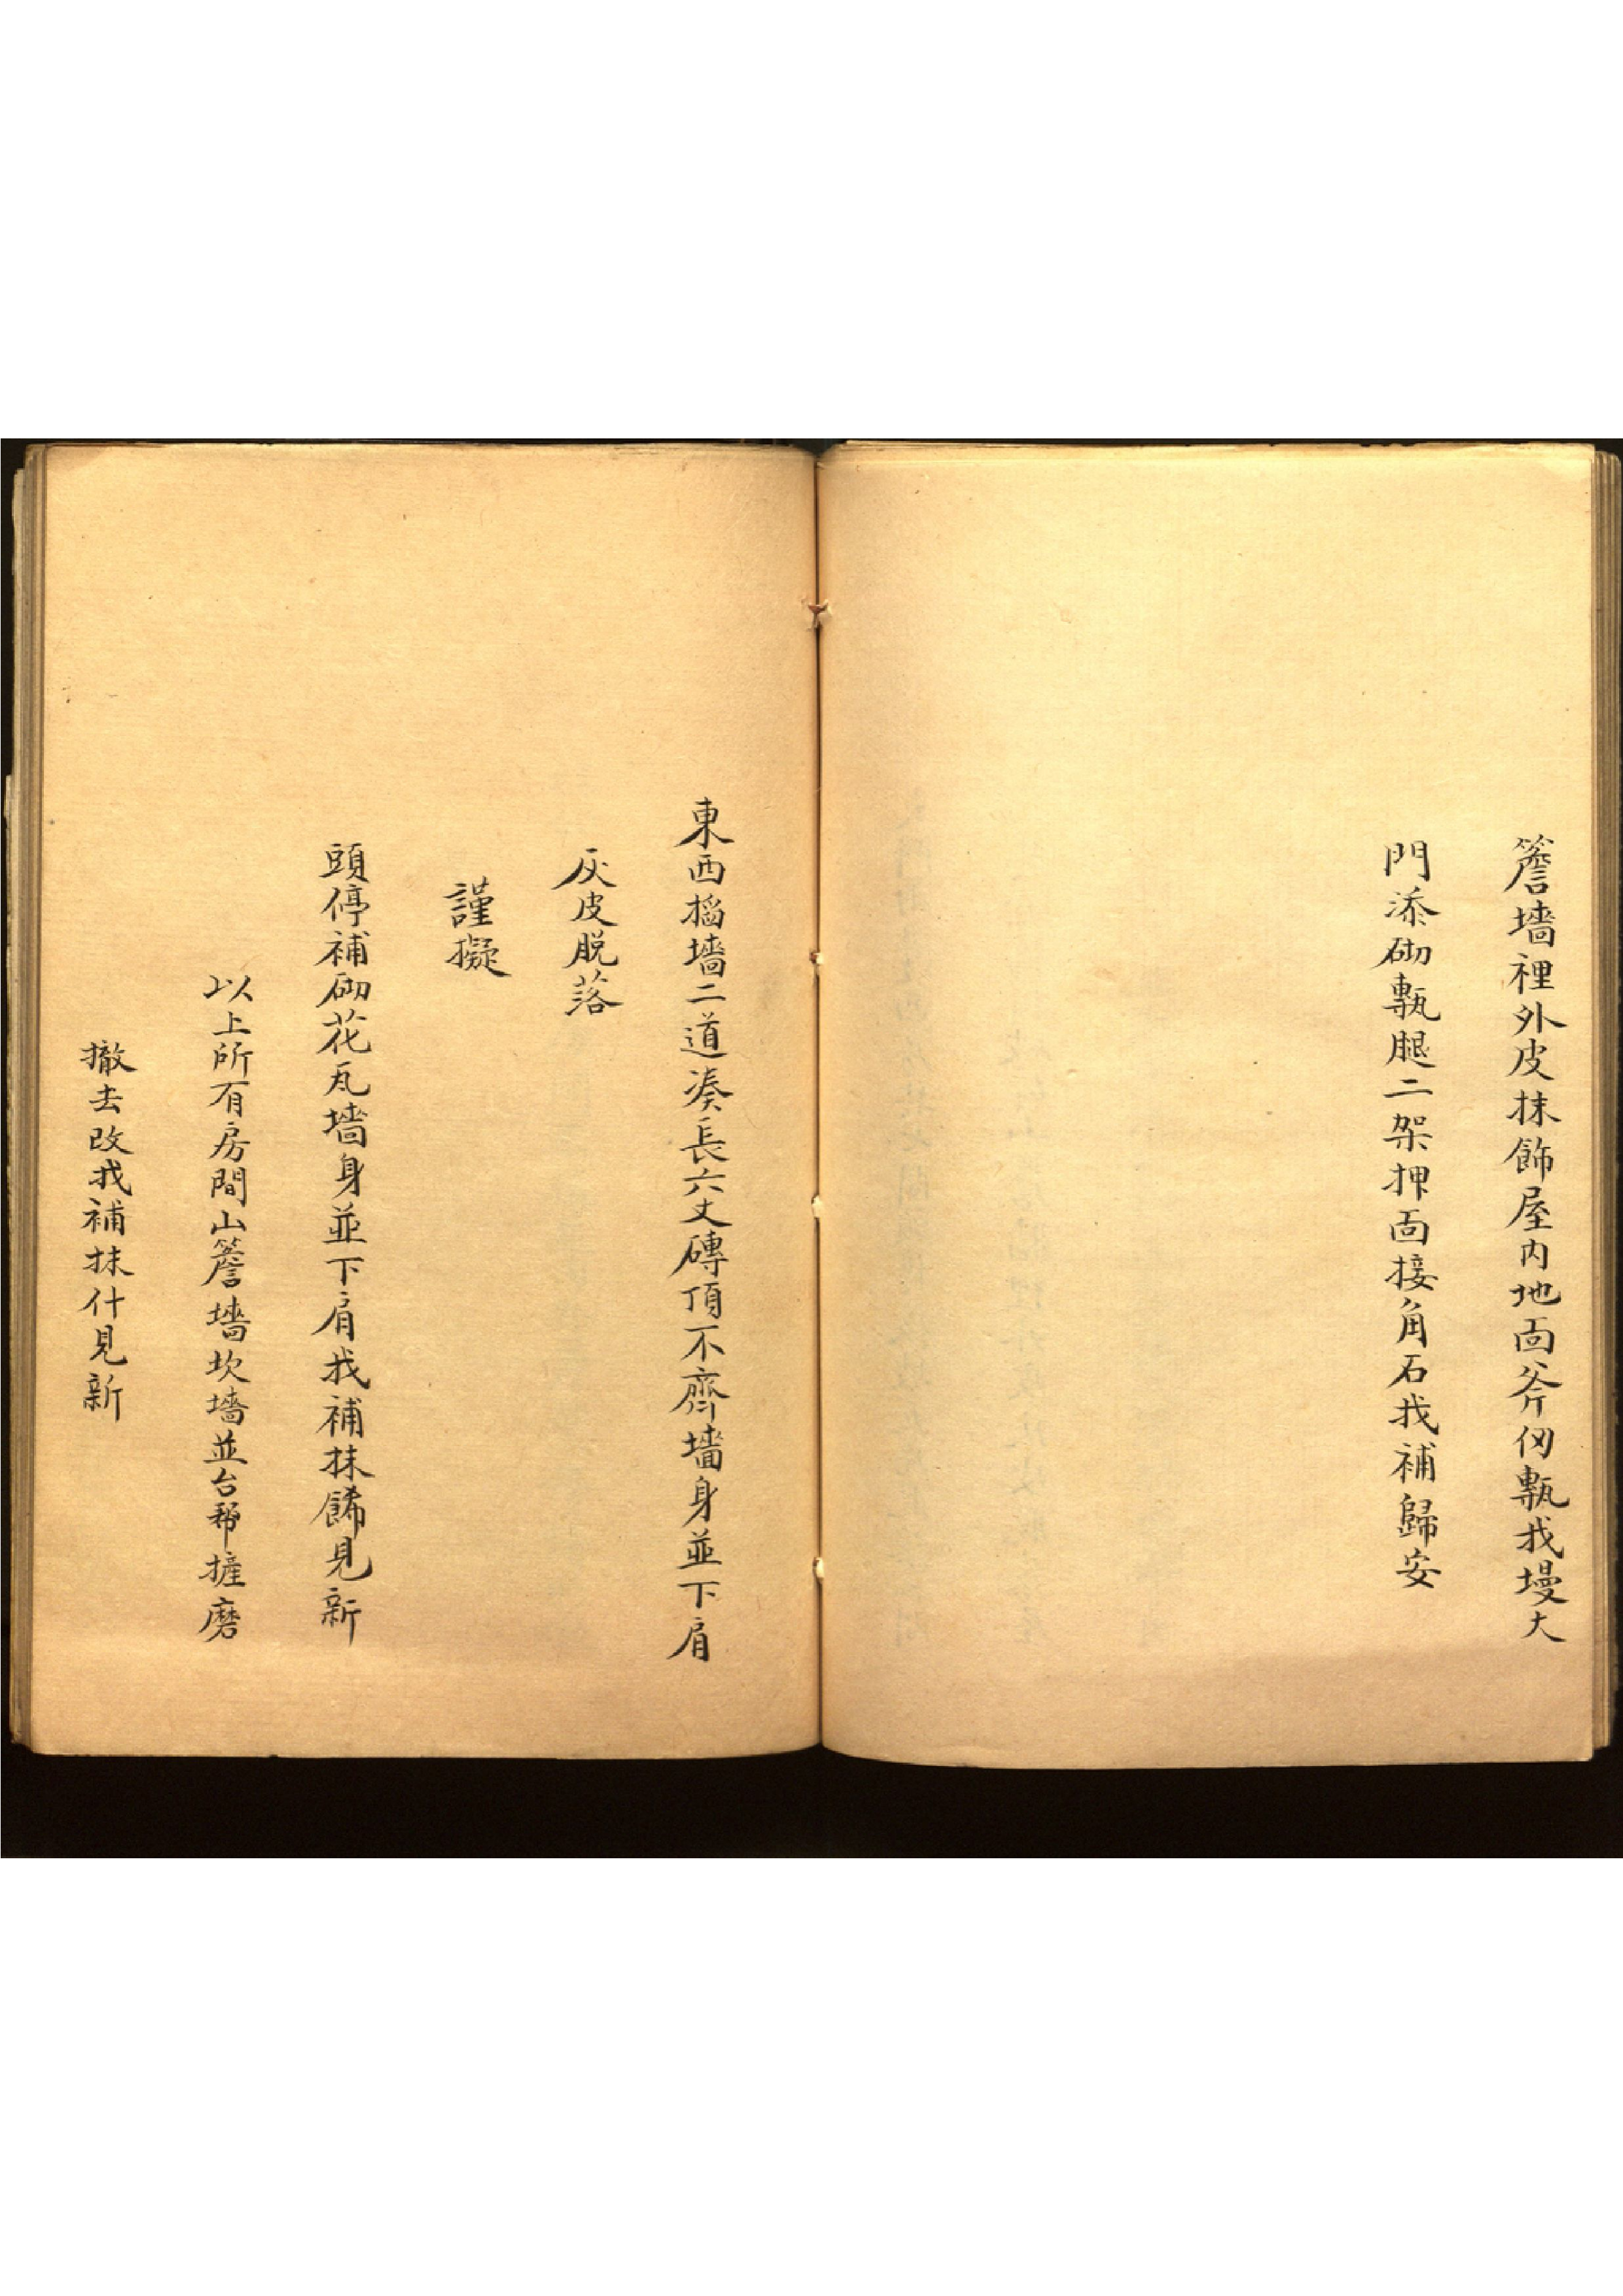 簷墻裡外皮抹飾屋内地面斧仞甎找墁大
門添砌甎腿二架押面接角石找補歸安
東西搯墻二道湊長六丈磚頂不齊墻身並下肩
灰皮脱落
謹擬
頭停補砌花瓦墻身並下肩找補抹餙見新
以上所有房間山簷墻坎墻並台帮摌磨
撤去改找補抹什見新